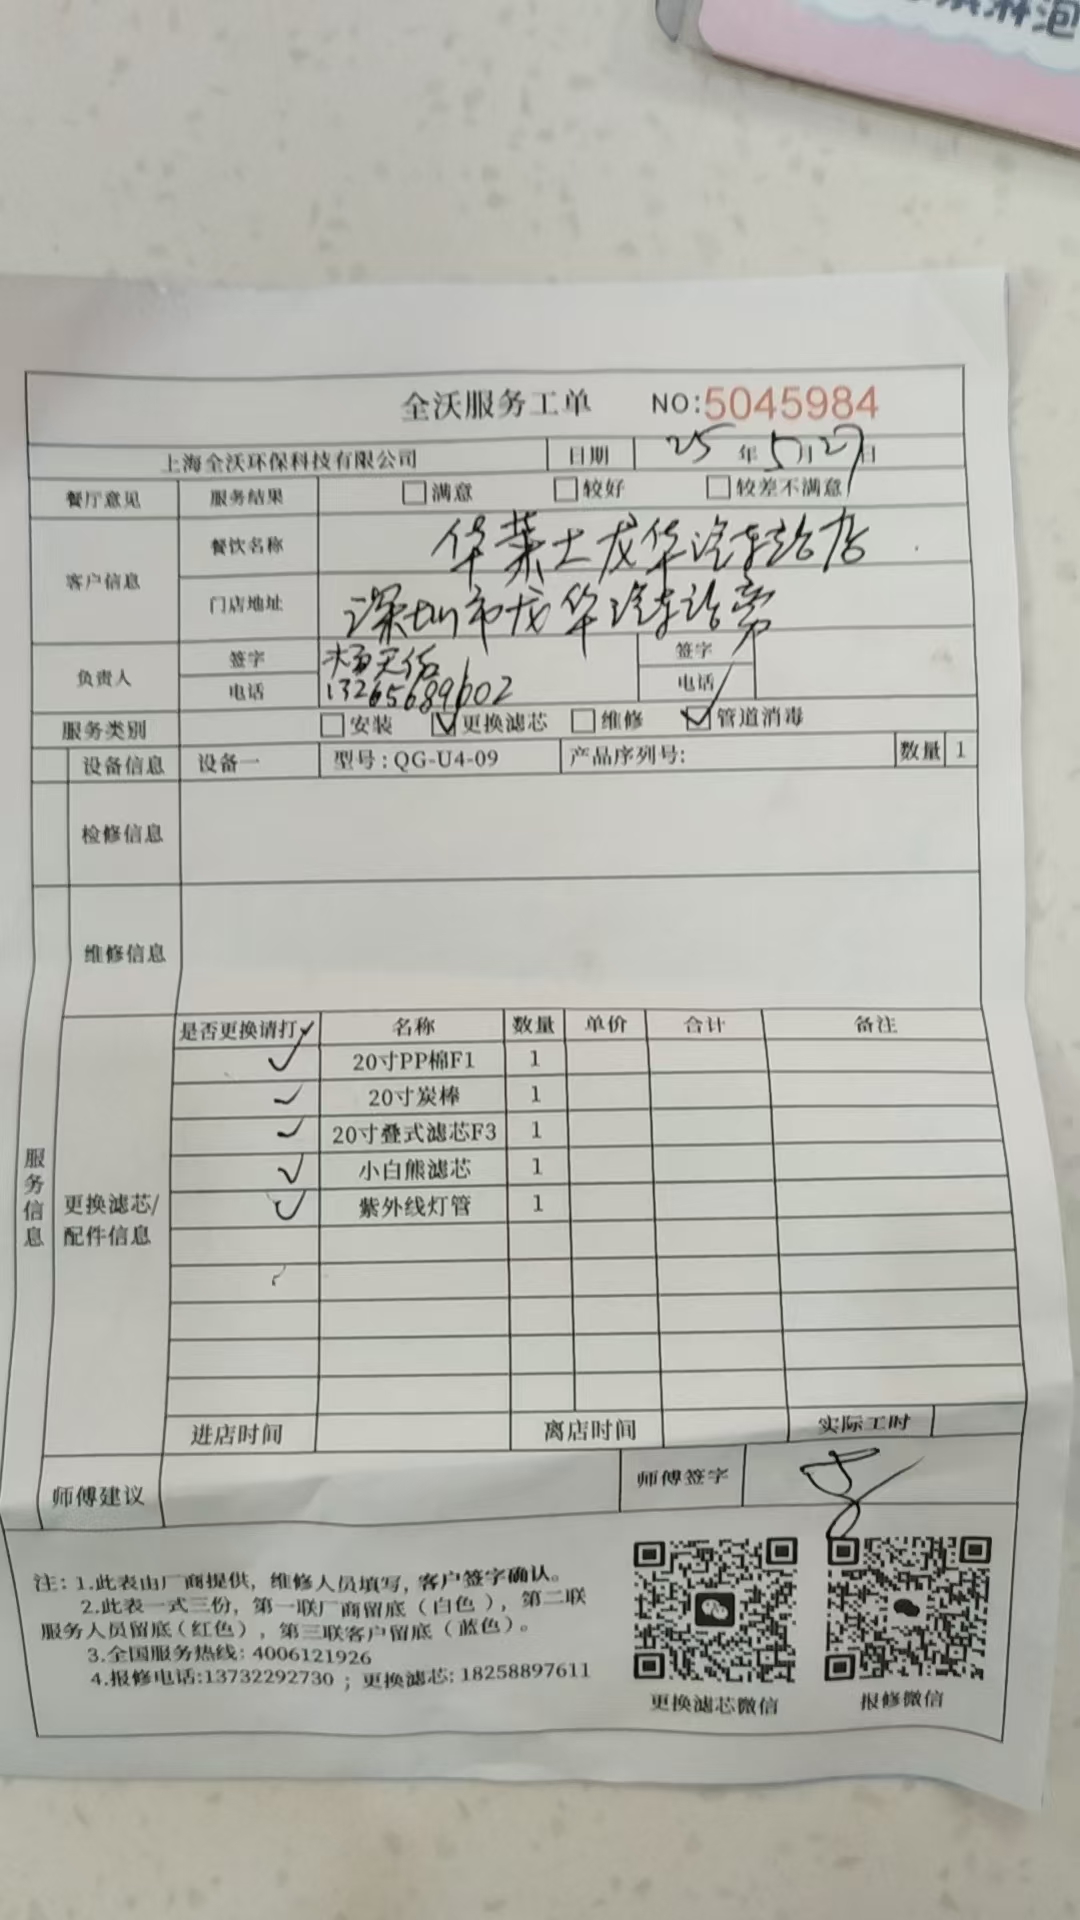 淋泡
全沃服务工单 NO:5045984
上海全沃环保科技有限公司 日期 25 年 5 月 27 日
餐厅意见 服务结果 □满意 □较好 □较差不满意
客户信息 餐饮名称 华莱士龙华汽车站店
门店地址 深圳市龙华汽车站旁
负责人 签字 杨天佑 签字
电话 13265689602 电话
服务类别 □安装 ☑更换滤芯 □维修 ☑管道消毒
设备信息 设备一 型号:QG-U4-09 产品序列号: 数量 1
检修信息
维修信息
服务信息
更换滤芯/配件信息
是否更换请打✓ 名称 数量 单价 合计 备注
✓ 20寸PP棉F1 1
✓ 20寸炭棒 1
✓ 20寸叠式滤芯F3 1
✓ 小白熊滤芯 1
✓ 紫外线灯管 1
进店时间 离店时间 实际工时
师傅建议 师傅签字
注: 1.此表由厂商提供，维修人员填写，客户签字确认。
2.此表一式三份，第一联厂商留底（白色），第二联
服务人员留底(红色)，第三联客户留底（蓝色）。
3.全国服务热线: 4006121926
4.报修电话:13732292730 ; 更换滤芯: 18258897611
更换滤芯微信 报修微信